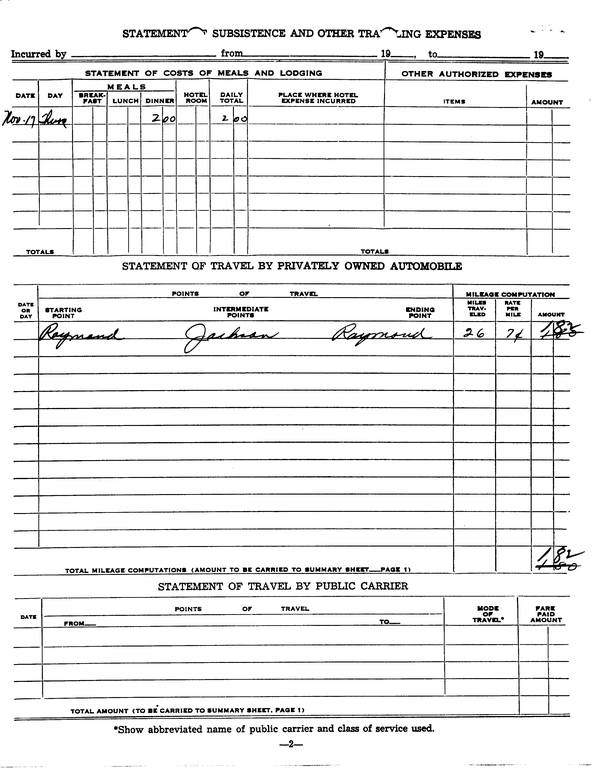 STATEMENT SUBSISTENCE AND OTHER TRA LING EXPENSES
Incurred by from 19 , to 19
STATEMENT OF COSTS OF MEALS AND LODGING OTHER AUTHORIZED EXPENSES
DATE DAY MEALS BREAK-FAST LUNCH DINNER HOTEL ROOM DAILY TOTAL PLACE WHERE HOTEL EXPENSE INCURRED ITEMS AMOUNT
Nov. 17 Thurs 2 00 2 00
TOTALS TOTALS
STATEMENT OF TRAVEL BY PRIVATELY OWNED AUTOMOBILE
DATE OR DAY POINTS OF TRAVEL MILEAGE COMPUTATION
STARTING POINT INTERMEDIATE POINTS ENDING POINT MILES TRAV-ELED RATE PER MILE AMOUNT
Raymond Jackson Raymond 26 7¢
1.82
TOTAL MILEAGE COMPUTATIONS (AMOUNT TO BE CARRIED TO SUMMARY SHEET PAGE 1)
STATEMENT OF TRAVEL BY PUBLIC CARRIER
DATE POINTS OF TRAVEL MODE OF TRAVEL* FARE PAID AMOUNT
FROM TO
TOTAL AMOUNT (TO BE CARRIED TO SUMMARY SHEET, PAGE 1)
*Show abbreviated name of public carrier and class of service used.
—2—